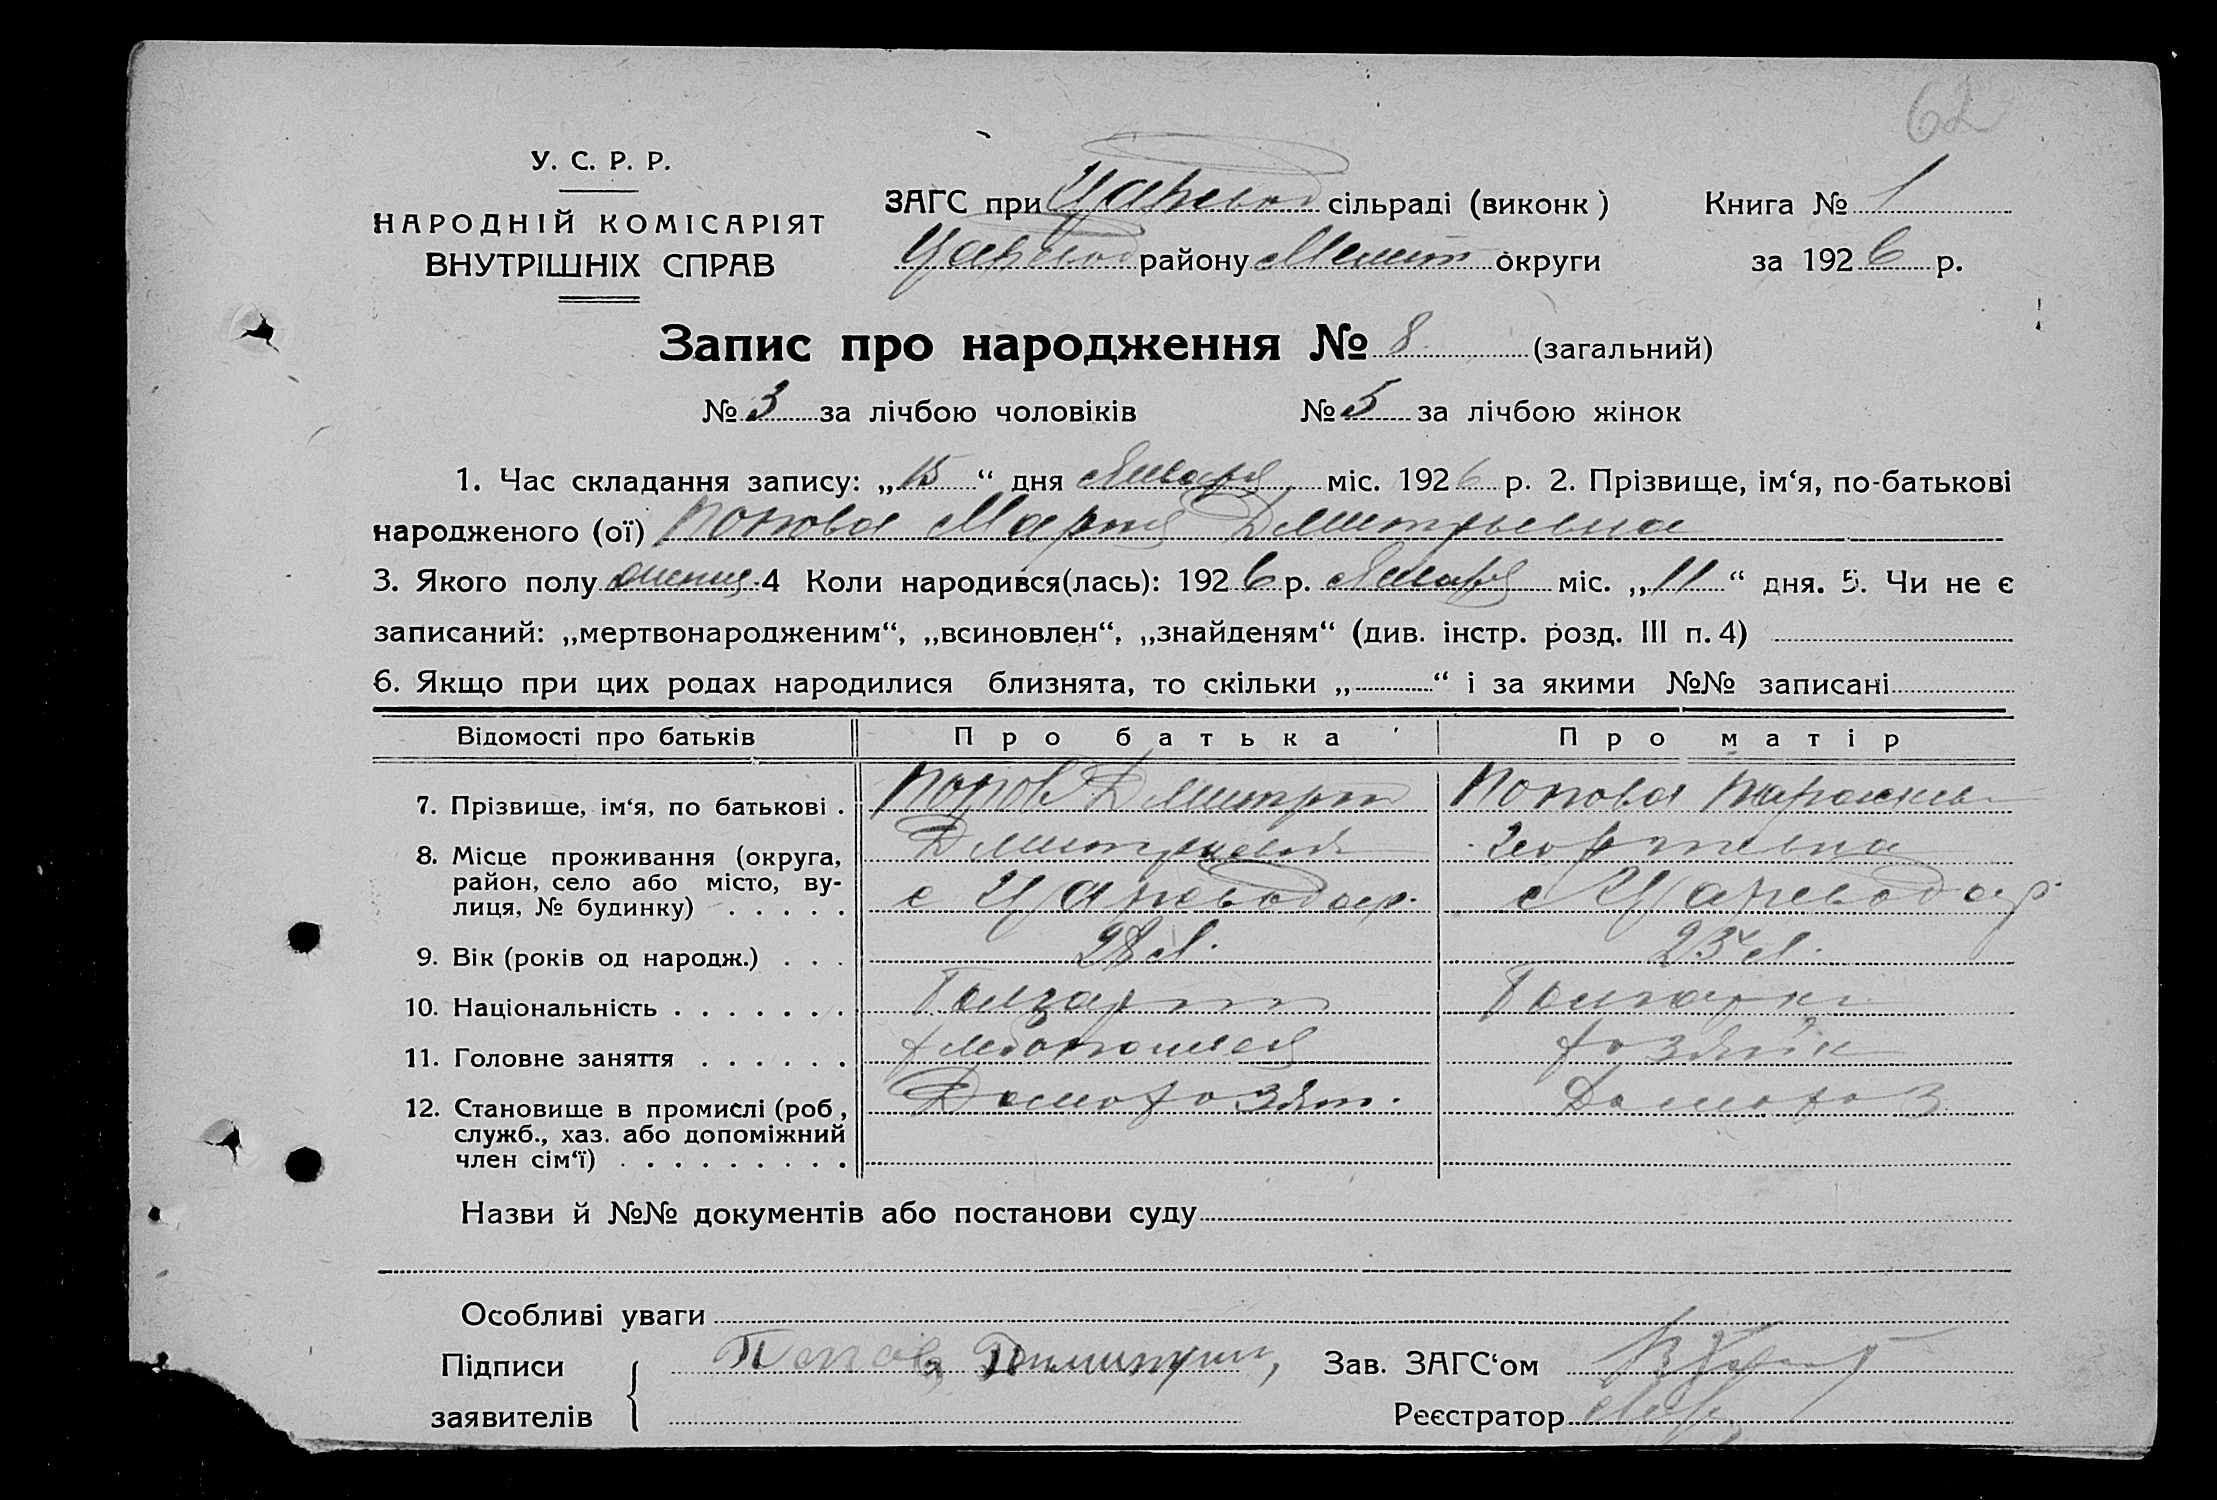 62
У. С. Р. Р.
НАРОДНІЙ КОМІСАРІЯТ
ВНУТРІШНІХ СПРАВ
ЗАГС при Царевод сільраді (виконк)
Царевод району Мелит округи
Книга № 1
за 1926 р.
Запис про народження № 8 (загальний)
№ 3 за лічбою чоловіків № 5 за лічбою жінок
1. Час складання запису: „15“ дня Января міс. 1926 р. 2. Прізвище, ім‘я, по-батькові
народженого (ої) Попова Мария Дмитрьевна
3. Якого полу 4 Коли народився(лась): 1926 р. Января міс. „11“ дня. 5. Чи не є
записаний: „мертвонародженим“, „всиновлен“, „знайденям“ (див. інстр. розд. III п. 4)
6. Якщо при цих родах народилися близнята, то скільки „ “ і за якими №№ записані
Відомості про батьків Про батька Про матір
7. Прізвище, ім‘я, по батькові . Попов Дмитрий Попова
Дмитриевич Георгиевна
8. Місце проживання (округа,
район, село або місто, ву-
лиця, № будинку) . . . . . с Цареводар. с Цареводар
9. Вік (років од народж.) . . . 28 л. 23 л.
10. Національність . . . . . . . Болгарин Болгарк
11. Головне заняття . . . . . . хлебопашец хозяйк
12. Становище в промислі (роб, Домохозяин. Домохоз
служб., хаз. або допоміжний
член сім‘ї) . . . . . . . . .
Назви й №№ документів або постанови суду
Особливі уваги
Підписи Попов Димитрий, Зав. ЗАГС‘ом
заявителів Реєстратор